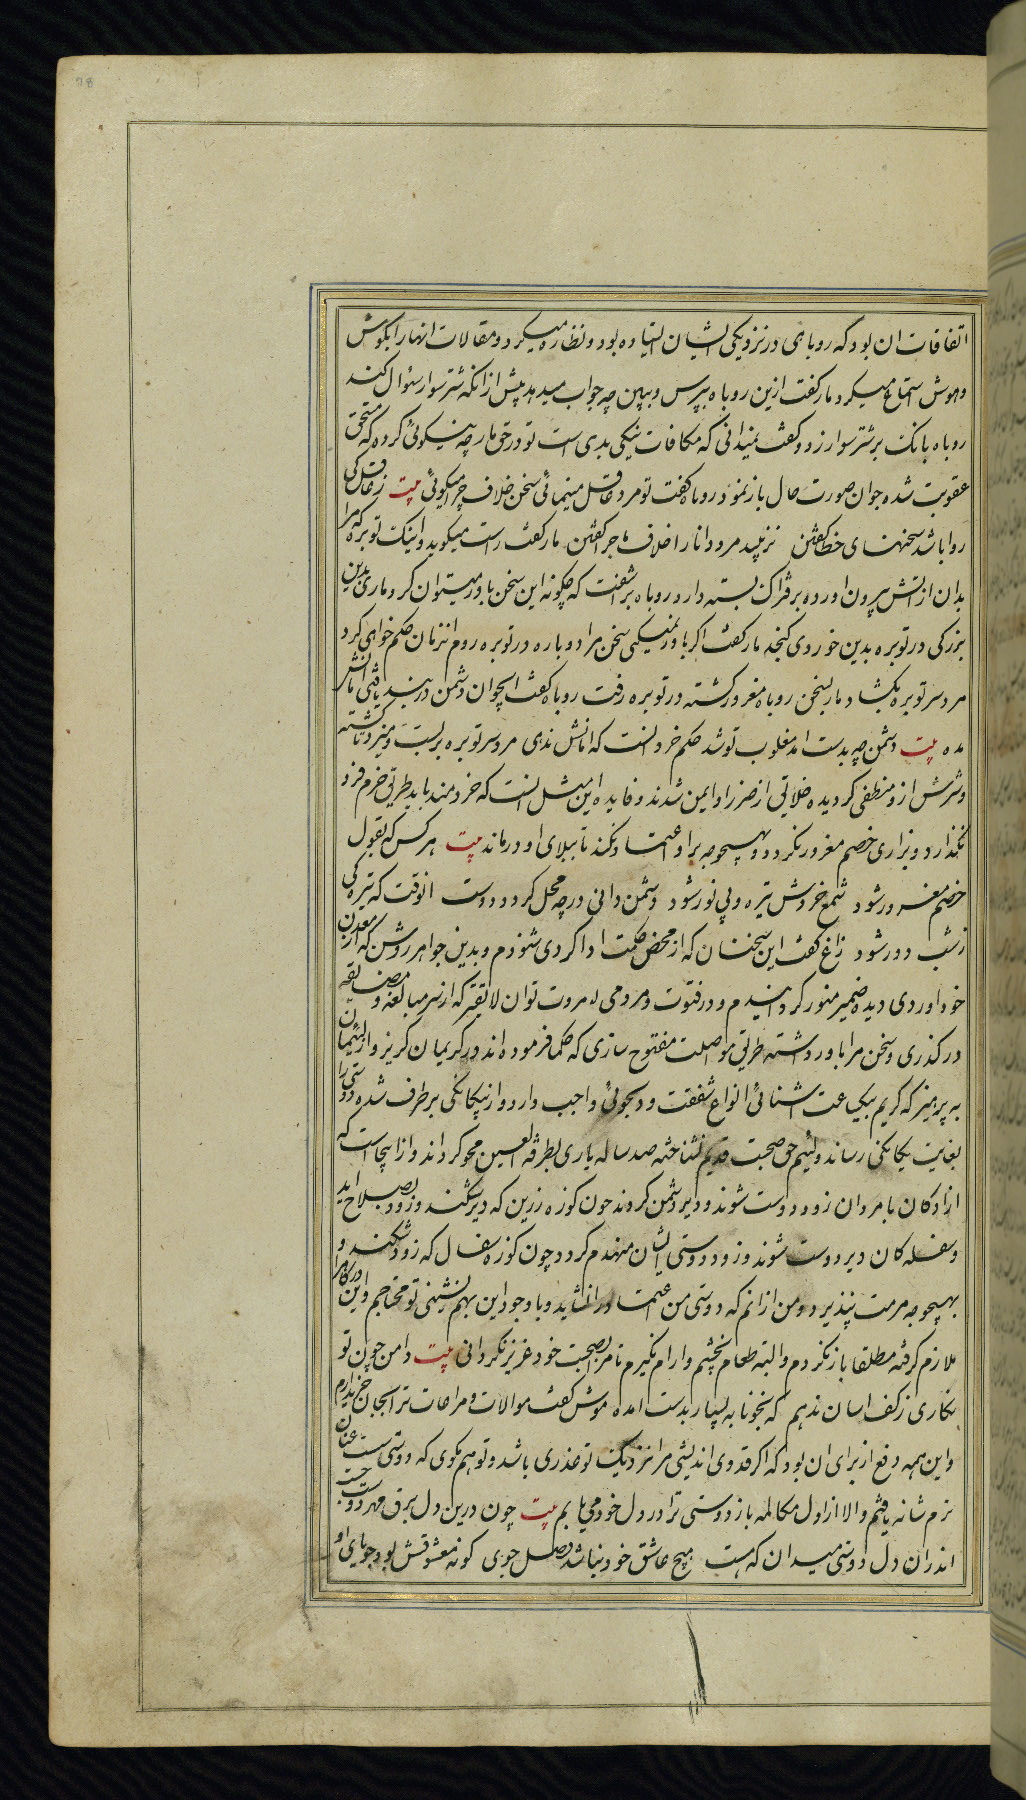 78
اتفاقات ان بود که روباهی در نزدیکی ایشان ایستاده بود و نظاره میکرد و مقالات انها را بگوش
وهوش استماع میکرد مار گفت ازین روباه بپرس و ببین چه جواب میدهد پیش از انکه شتر سوار سئوال کند
روباه بانک بر شتر سوار زد و گفت نمیدانی که مکافات نیکی بدی است تو در حق مار چه نیکوئی کرده که مستحق
عقوبت شده جوان صورت حال باز نمود روباه گفت تو مرد عاقل مینمائی سخن خلاف چرا میگوئی بیت ز عاقل کی
روا باشد سخنهای خطا گفتن نزیبد مرد دانا را خلاف ماجرا گفتن مار گفت راست میگوید و اینک توبره که مرا
بدان از اتش بیرون اورده بر فتراک بسته دارد روباه برشفت که چگونه این سخن باور میتوان کرد ماری بدین
بزرکی در توبره بدین خوردی کنجد مار گفت اگر باور نمیکنی سخن مرا دوباره در توبره روم انزمان حکم خواهی کرد
مرد سر توبره بگشاد مار بسخن روباه مغرور گشته در توبره رفت روباه گفت ایجوان دشمن در بند یافتی امانش
مده بیت دشمن چه بدست امد مغلوب تو شد حکم خرد انست که امانش ندهی مرد سر توبره بربست و میزد تا کشته
و شرش ازو منطفی کردیده خلایق از ضرر او ایمن شدند و فایده این مثل انست که خردمند باید طریق حزم فرو
نگذارد و بزاری خصم مغرور نگردد و بهیچوجه بر او اعتماد نکند تا ببلای او در نماند بیت هر کس که بقول
خصم مغرور شود شمع خردش تیره و بی نور شود دشمن دانی در چه محل کردد دوست انوقت که تیره کی
ز شب دور شود زاغ گفت این سخنان که از محض حکمت ادا کردی شنودم و بدین جواهر روشن که از معدن
خود اوردی دیده ضمیر منور کردانیدم و در فتوت و مردمی و مروت توان لایقتر که از سر مبالغه و مضایقه
در کذری و سخن مرا باور داشته طریق مواصلت مفتوح سازی که حکما فرموده اند در کریمان گریز و از لئیمان
به پرهیز که کریم بیکساعت اشنائی انواع شفقت و دلجوئی واجب دارد و از بیگانگی بر طرف شده دوستی را
بغایت یکانگی رساند و لئیم حق صحبت قدیم نشناخته صد ساله یاری بطرفة العین محو گرداند و از اینجاست که
ازادگان با مردان زود دوست شوند و دیر دشمن گردند چون کوزه زرین که دیر شکند و زود بصلاح اید
و سفله کان دیر دوست شوند و زود دوستی ایشان منهدم گردد چون کوزه سفال که زود شکند و
بهیچوجه مرمت نپذیرد و من از انم که دوستی من اعتماد را شاید و با وجود این بهم نشینی تو محتاجم و این درگاه را
ملازم گرفته مطلقا باز نگردم و البته طعام نچشم و ارام نگیرم تا مرا بصحبت خود عزیز نگردانی بیت دامن چون تو
نگاری ز کف اسان ندهم که بخونابه بسیار بدست امده موش گفت موالات و مراعات ترا بجان خریدارم
و این همه دفع از برای ان بود که اگر قدوی اندیشی مرا نزدیک تو عذری باشد و تو هم نگوی که دوستی سست عنان
نرم شانه یافتم والا از اول مکالمه باز دوستی ترا در دل خود می یابم بیت چون درین دل برق مهر دوست جست
اندران دل دوستی میدان که هست هیچ عاشق خود نباشد وصل جوی کو نه معشوقش بود جویای او